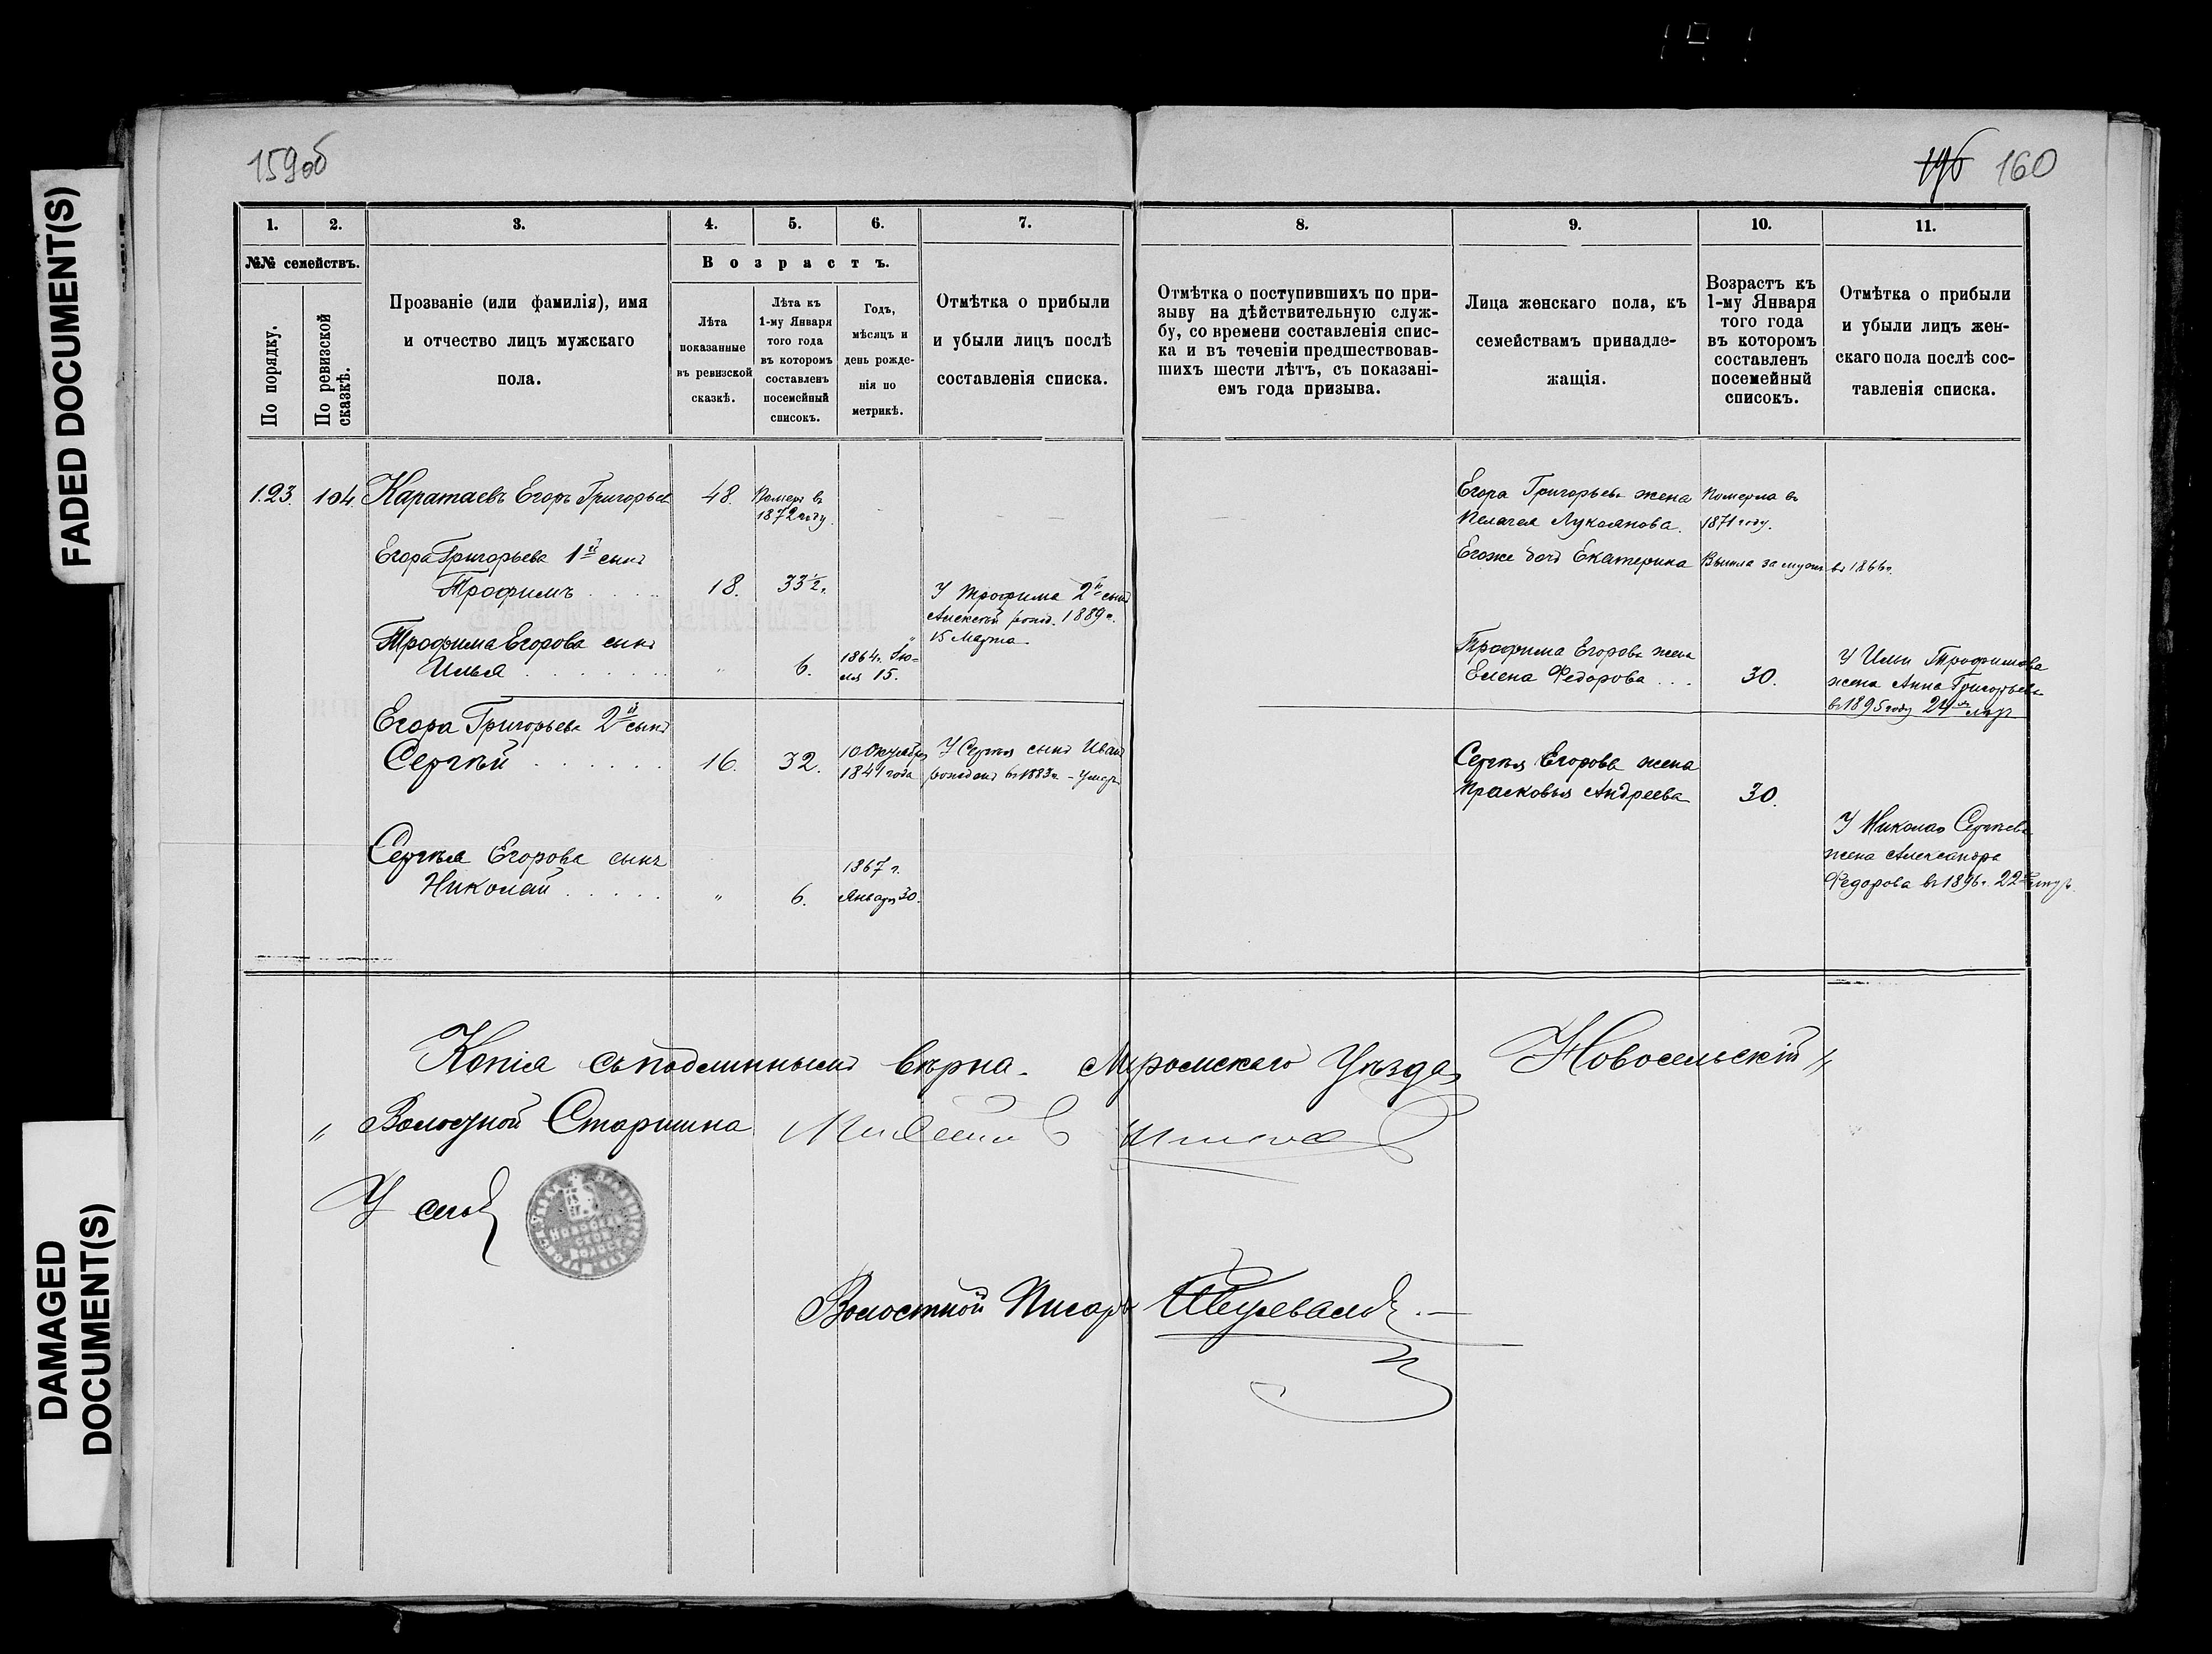 FADED DOCUMENT(S)
DAMAGED
DOCUMENT(S)
159об
196 160
1. 2. 3. 4. 5. 6. 7. 8. 9. 10. 11.
№№ семействъ.
По порядку.
По ревизской
сказкѣ.
Прозваніе (или фамилія), имя
и отчество лицъ мужскаго
пола.
Возрастъ.
Лѣта
показанные
въ ревизской
сказкѣ.
Лѣта къ
1-му Января
того года
въ которомъ
составленъ
посемейный
списокъ.
Годъ,
мѣсяцъ и
день рожде-
нія по
метрикѣ.
Отмѣтка о прибыли
и убыли лицъ послѣ
составленія списка.
Отмѣтка о поступившихъ по при-
зыву на дѣйствительную служ-
бу, со времени составленія спис-
ка и въ теченіи предшествовав-
шихъ шести лѣтъ, съ показані-
емъ года призыва.
Лица женскаго пола, къ
семействамъ принадле-
жащія.
Возрастъ къ
1-му Января
того года
въ которомъ
составленъ
посемейный
списокъ.
Отмѣтка о прибыли
и убыли лицъ жен-
скаго пола послѣ сос-
тавленія списка.
123. 104. Каратаевъ Егоръ Григорьев 48. Померъ въ
1872 году.
Егора Григорьева жена Померла въ
Пелагея Лукоянова. 1871 году.
Егора Григорьева 1й сынъ
Трофимъ 18. 33½.
Егоже дочь Екатерина Вышла за мужъ въ 1866г.
У Трофима 2й сынъ
Алексѣй рожд. 1889г.
15 Марта
Трофима Егорова сынъ
Илья " 6. 1864г. Ію-
ля 15.
Трофима Егорова жена
Елена Федорова 30.
У Ильи Трофимова
жена Анна Григорьева
въ 1895 году 24
Егора Григорьева 2й сынъ
Сергѣй 16. 32. 10 Октября
1841 года
У Сергѣя сынъ Иванъ
рожденъ въ 1883г. - умеръ
Сергѣя Егорова жена
Прасковья Андреева 30.
Сергѣя Егорова сынъ
Николай " 6. 1867 г.
Января 30.
У Николая Сергѣева
жена Александра
Федорова въ 1896г. 22
Копія съ подлиннымъ вѣрна. Муромскаго Уѣзда, Новосельскій
Волостной Старшина
Волостной Писарь